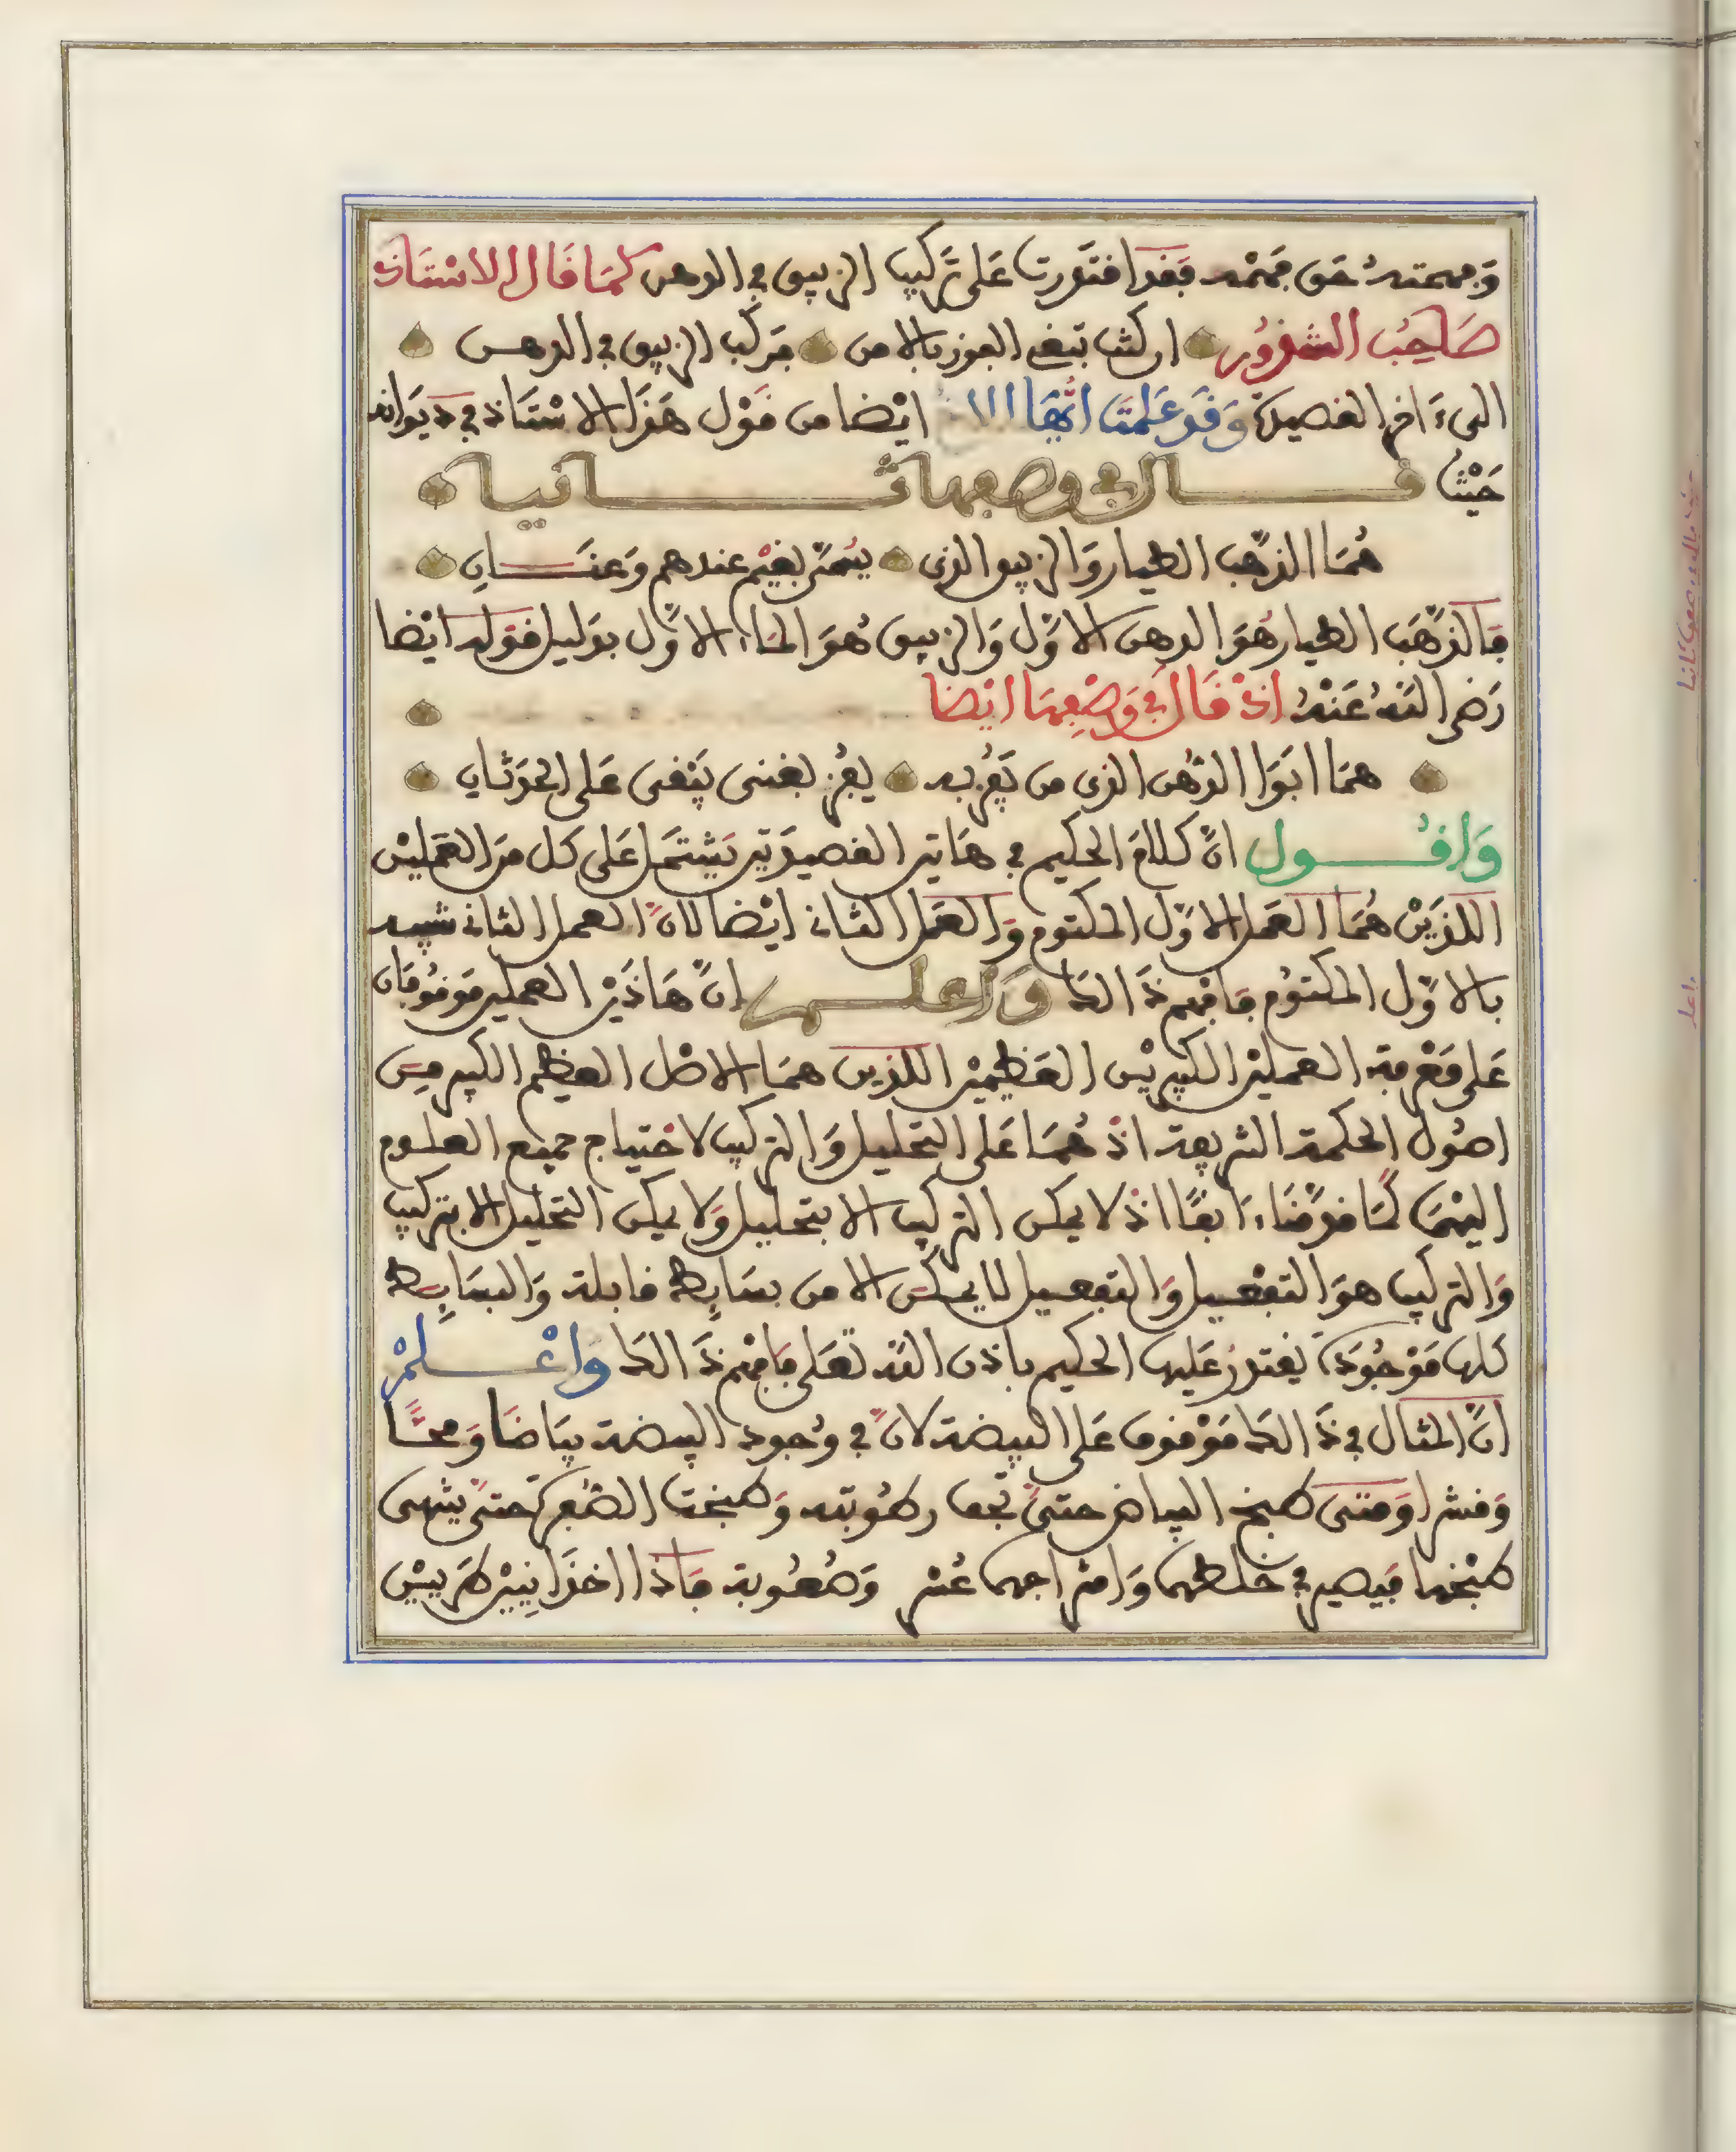 وَفهمتهُ حَق فَهْمه فَقد اقتَدرت عَلى تَركيب الزيبق في الدهن كمَا قَال الاسْتَاذ
صَاحِبُ الشذوُر ان كنت تبغي الفوز بالامن فركب الزيبق في الدهن
الىءَاخر القصيدة وَقد عَلمتَ ايُّهَا الاخ ايْضا من قَوْل هَذا الاسْتَاذ في دَيوَانه
حَيْث قال في وصفها ثانية
هُمَا الذهَب الطيار وَالزيبق الذي يُسَمّى بغيْم عندهم وَعنَان
فَالذهَب الطيار هُوَ الدهن الاوَّل وَالزيبق هُوَ المَاء الاوَّل بدَليل قَوله ايْضا
رَضي اللهُ عَنْهُ اذْ قَال في وَصْفِهمَا ايْضا
همَا ابَوَا الدُهن الذي من يَفُز به يفُز بغنى يَبْقى عَلى الحدَثان
وَاقُول انَّ كلامَ الحكيم في هَاتين القصيدَتين يَشتَمل عَلى كل منَ العَمليْن
اللذَيْن هُمَا العَمل الاوَّل المكتوم وَالعَمل الثاني ايْضا لانَّ العمل الثاني شبيه
بالاوَّل المكتوُم فَافهم ذَ الك وَاعلم انَّ هَاذَيْن العملين مَوقوُفَان
عَلى مَعْرفة العمليْن الكبيريْن العَظيميْن اللذين همَا الاصْل العظيم الكبير مِن
اصُول الحكمة الشريفة اذْ هُمَا عَلى التحليل وَالتركيب لاحْتياج جميع العلوم
اليْهمَا كمَا قدمْنَاءَانفًا اذ لا يمكن التركيب الا بتحليل وَلا يمكن التحليل الا بتركيب
وَالتركيب هوَ التفْصيل وَالتفصيل لا يمكن الا من بسَايط قابلة وَالبسَايط
كلها مَوْجُودَة يقتدرُ عَليها الحكيم باذن الله تعَلى فَافْهم ذَ الك وَاعْلمْ
انَّ المثال في ذَ الك مَوْقوف عَلى البيضة لانَّ في وُجود البيضة بيَاضا وَمحًّا
وَقشرا وَمتى طبخ البياض حتىَّ تجف رطُوبته وَطبخت الصُفرة حتىَّ ينتهى
طبْخها فيصير في خلطهما وَامتزاجهما عُسْر وَصُعُوبة فَاذا اخذَا نِيَيْن طَريَيْن